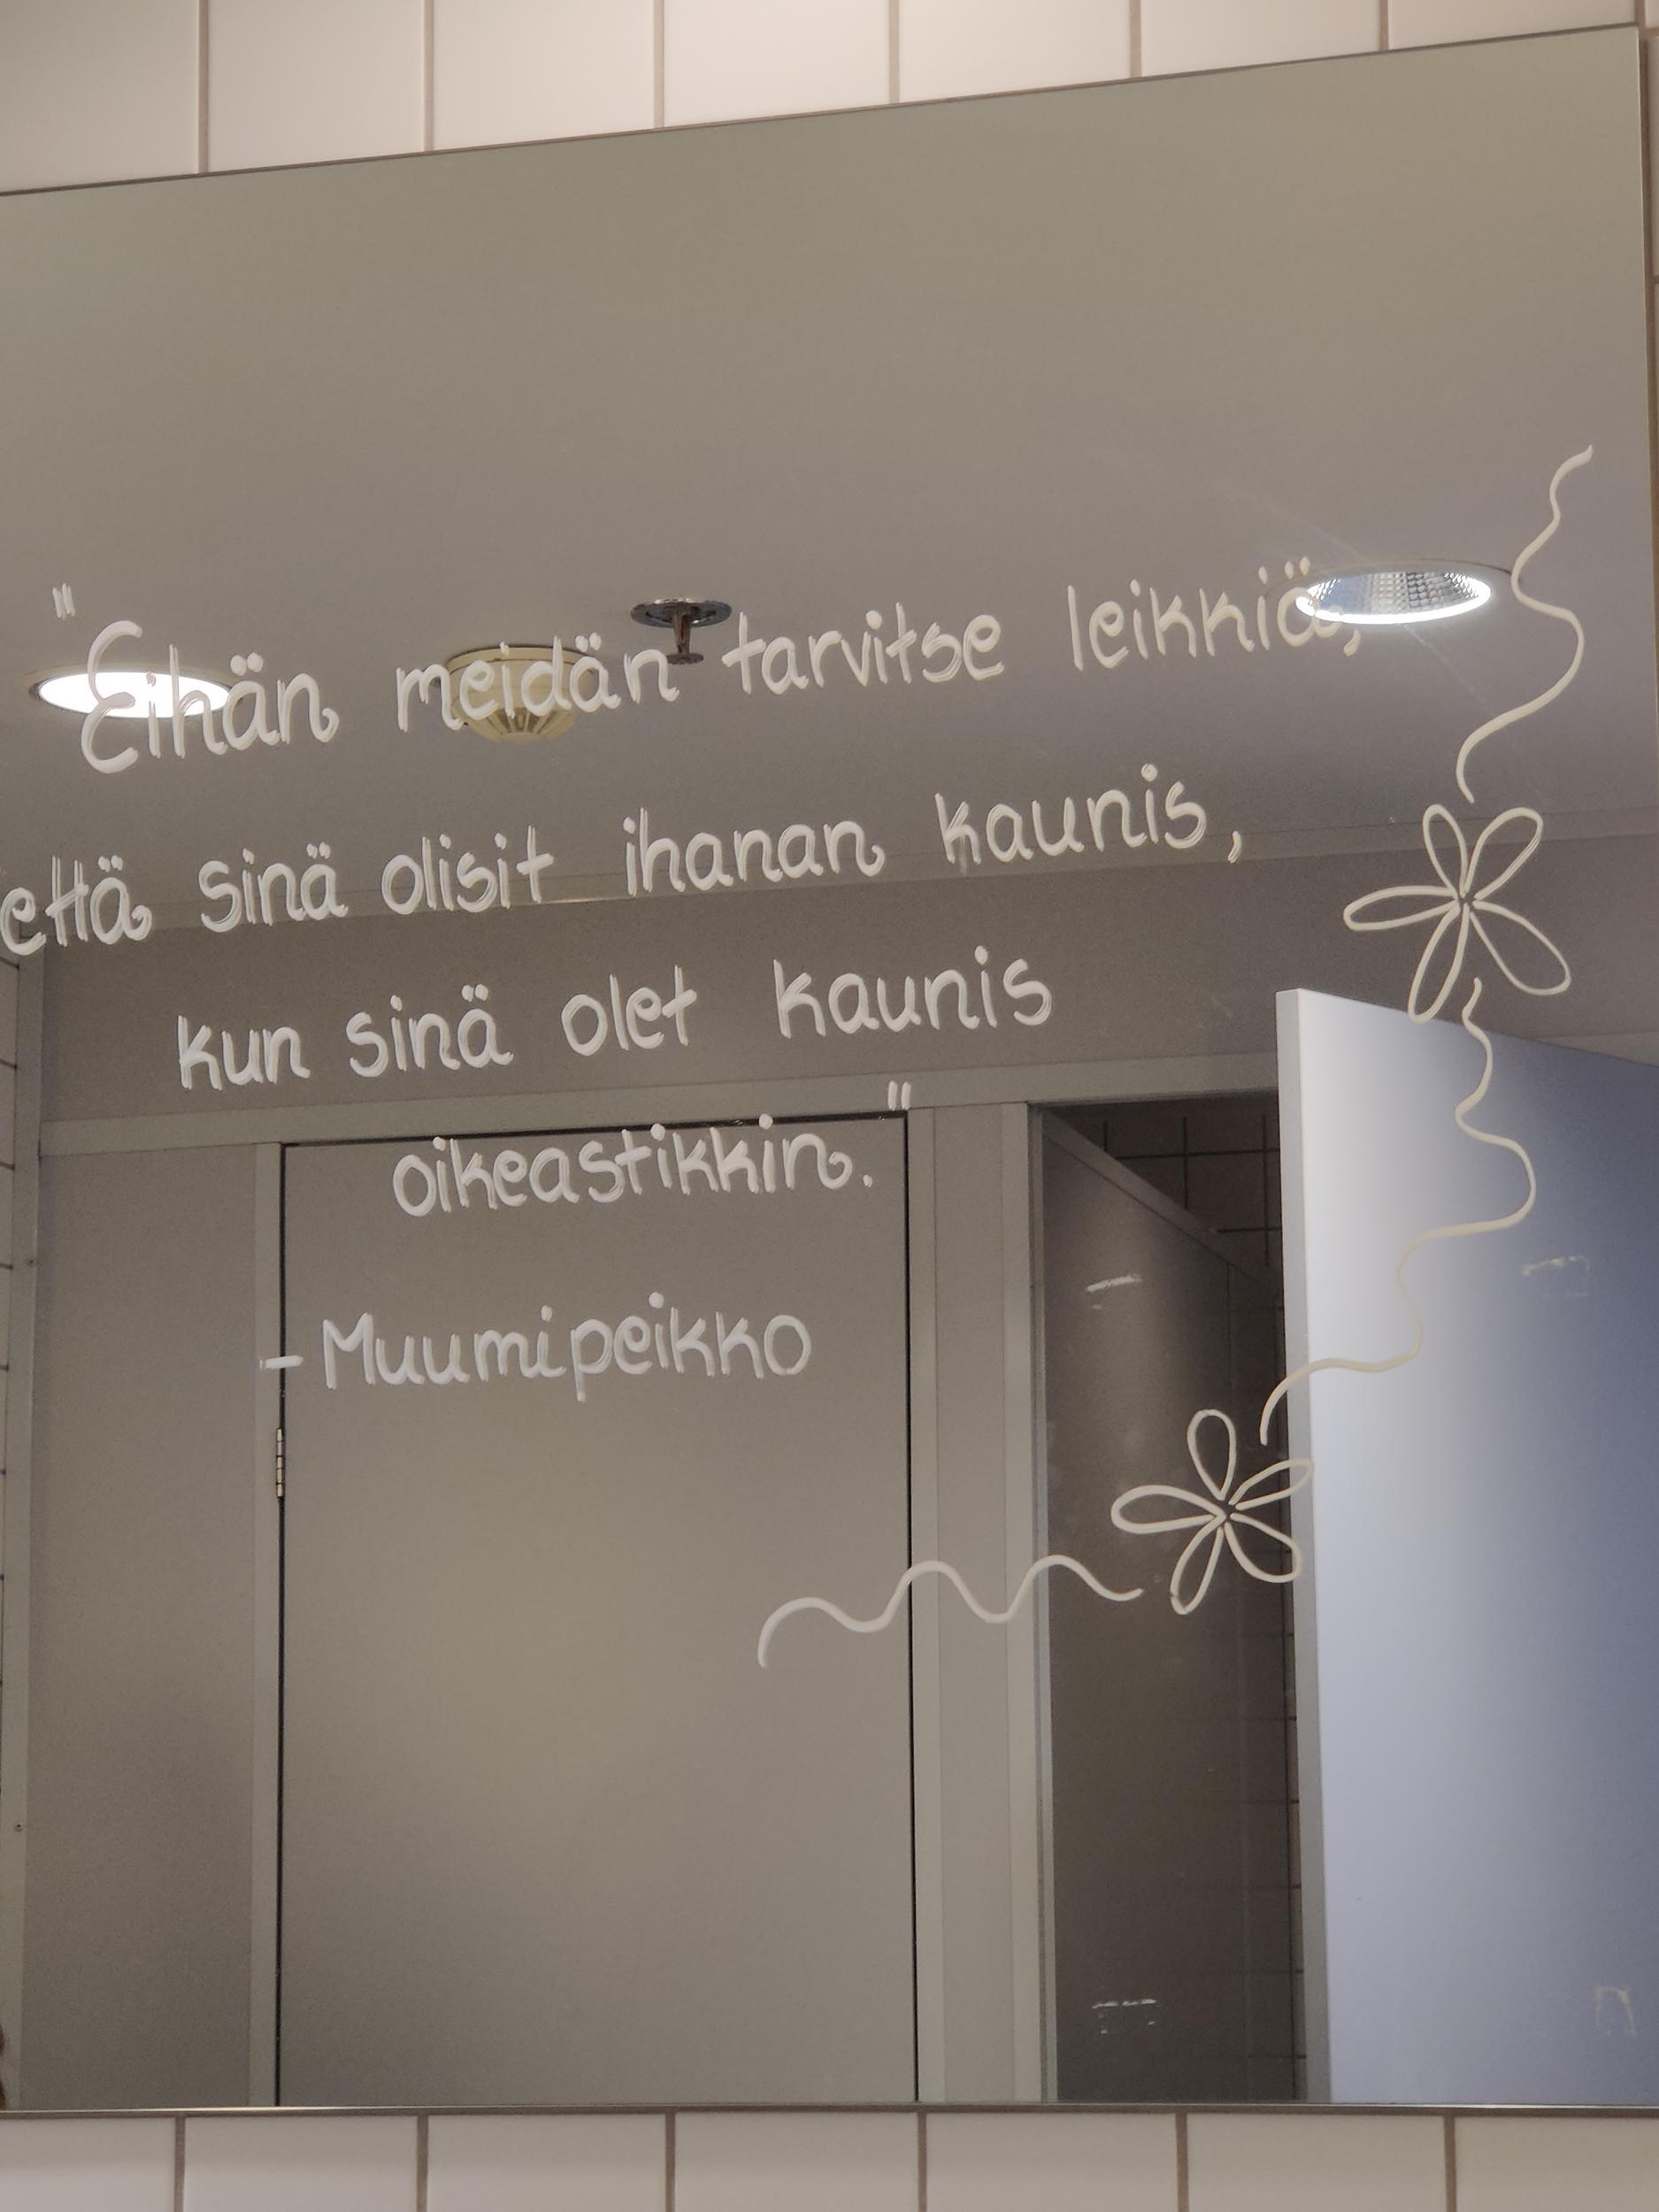 "Eihän meidän tarvitse leikkiä,
että sinä olisit ihanan kaunis,
kun sinä olet kaunis
oikeastikkin."
- Muumipeikko